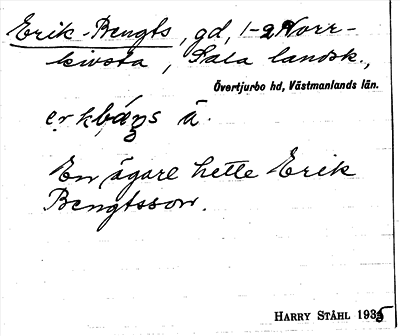 Erik-Bengts, gd, 1-2 Norr-
kivsta, Sala landsk.,
Övertjurbo hd, Västmanlands län.
erkbáŋs ä.
En ägare hette Erik
Bengtsson.
HARRY STÅHL 1935